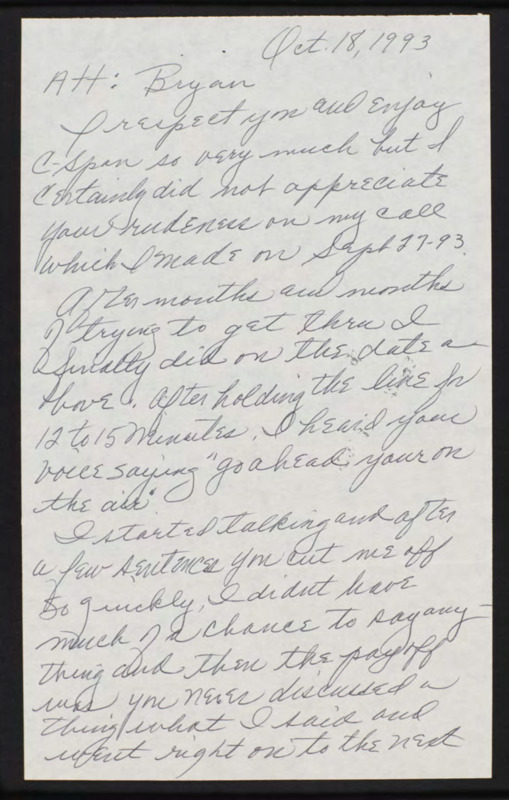 Oct. 18, 1993
Att: Bryan
I respect you and enjoy
C-Span so very much but I
certainly did not appreciate
your rudeness on my call
which I made on Sept 27-93.
After months and months
of trying to get thru I
finally did on the date a-
bove. After holding the line for
12 to 15 minutes, I heard your
voice saying "go ahead, your on
the air".
I started talking and after
a few sentences you cut me off
so quickly, I didnt have
much of a chance to say any-
thing and then the payoff
was you never discussed a
thing what I said and
went right on to the next